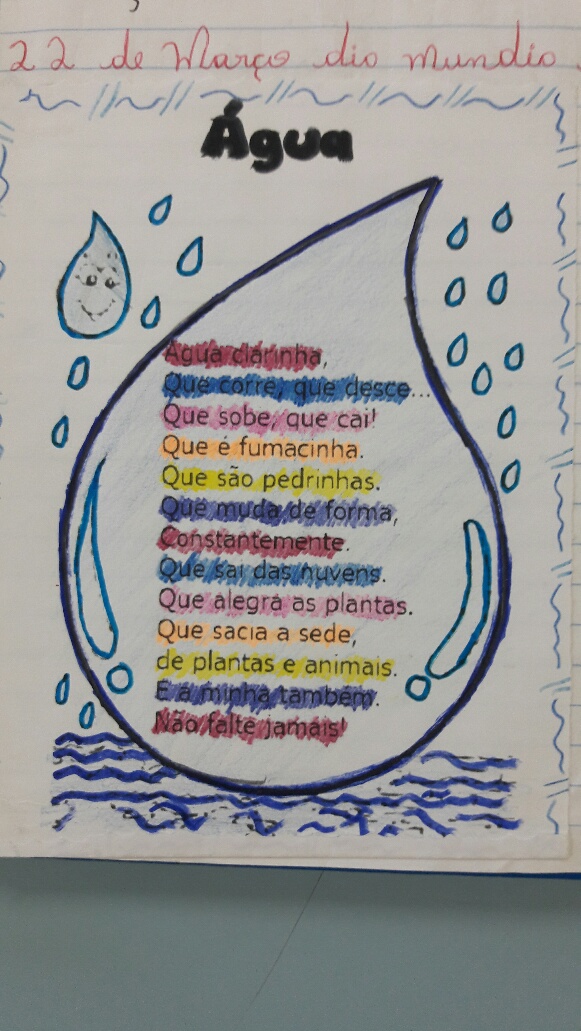 22 de Março dia mundia
Água
Água clarinha,
Que corre, que desce...
Que sobe, que cai!
Que é fumacinha.
Que são pedrinhas.
Que muda de forma,
Constantemente.
Que sai das nuvens.
Que alegra as plantas.
Que sacia a sede,
de plantas e animais.
E a minha também.
Não falte jamais!